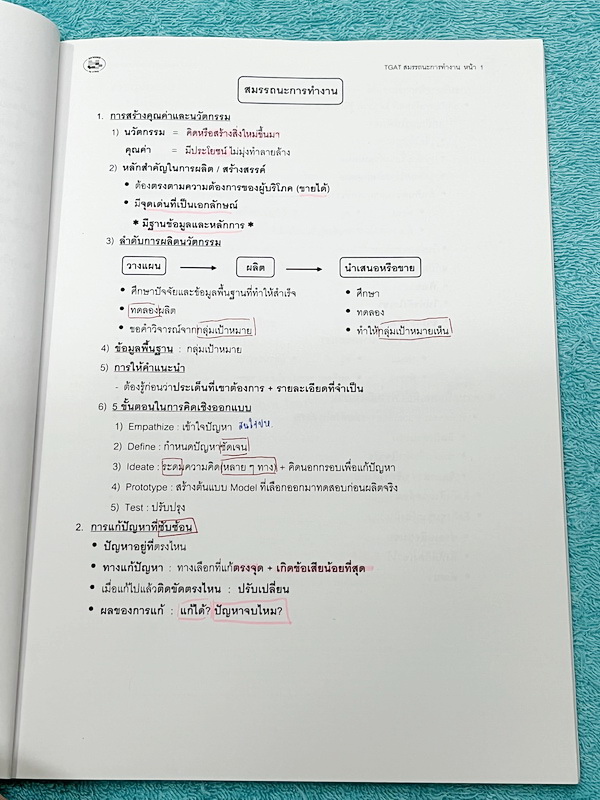 TGAT สมรรถนะการทำงาน หน้า 1
สมรรถนะการทำงาน
1. การสร้างคุณค่าและนวัตกรรม
1) นวัตกรรม = คิดหรือสร้างสิ่งใหม่ขึ้นมา
คุณค่า = มีประโยชน์ ไม่มุ่งทำลายล้าง
2) หลักสำคัญในการผลิต / สร้างสรรค์
• ต้องตรงตามความต้องการของผู้บริโภค (ขายได้)
• มีจุดเด่นที่เป็นเอกลักษณ์
* มีฐานข้อมูลและหลักการ *
3) ลำดับการผลิตนวัตกรรม
วางแผน → ผลิต → นำเสนอหรือขาย
• ศึกษาปัจจัยและข้อมูลพื้นฐานที่ทำให้สำเร็จ • ศึกษา
• ทดลองผลิต • ทดลอง
• ขอคำวิจารณ์จากกลุ่มเป้าหมาย • ทำให้กลุ่มเป้าหมายเห็น
4) ข้อมูลพื้นฐาน : กลุ่มเป้าหมาย
5) การให้คำแนะนำ
- ต้องรู้ก่อนว่าประเด็นที่เขาต้องการ + รายละเอียดที่จำเป็น
6) 5 ขั้นตอนในการคิดเชิงออกแบบ
1) Empathize : เข้าใจปัญหา
2) Define : กำหนดปัญหาชัดเจน
3) Ideate : ระดมความคิด (หลาย ๆ ทาง) + คิดนอกกรอบเพื่อแก้ปัญหา
4) Prototype : สร้างต้นแบบ Model ที่เลือกออกมาทดสอบก่อนผลิตจริง
5) Test : ปรับปรุง
2. การแก้ปัญหาที่ซับซ้อน
• ปัญหาอยู่ที่ตรงไหน
• ทางแก้ปัญหา : ทางเลือกที่แก้ตรงจุด + เกิดข้อเสียน้อยที่สุด
• เมื่อแก้ไปแล้วติดขัดตรงไหน : ปรับเปลี่ยน
• ผลของการแก้ : แก้ได้? ปัญหาจบไหม?